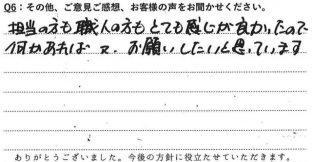 Q6：その他、ご意見ご感想、お客様の声をお聞かせください。
担当の方も職人の方もとても感じが良かったので
何かあれば又、お願いしたいと思っています
ありがとうございました。今後の方針に役立たせていただきます。